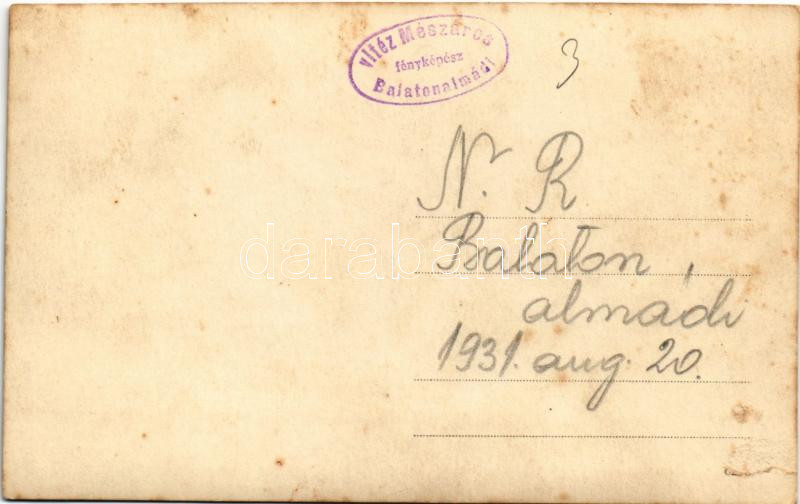 vitéz Mészáros
fényképész
Balatonalmádi
3
N. R
Balaton,
almádi
1931. aug. 20.
darabanth